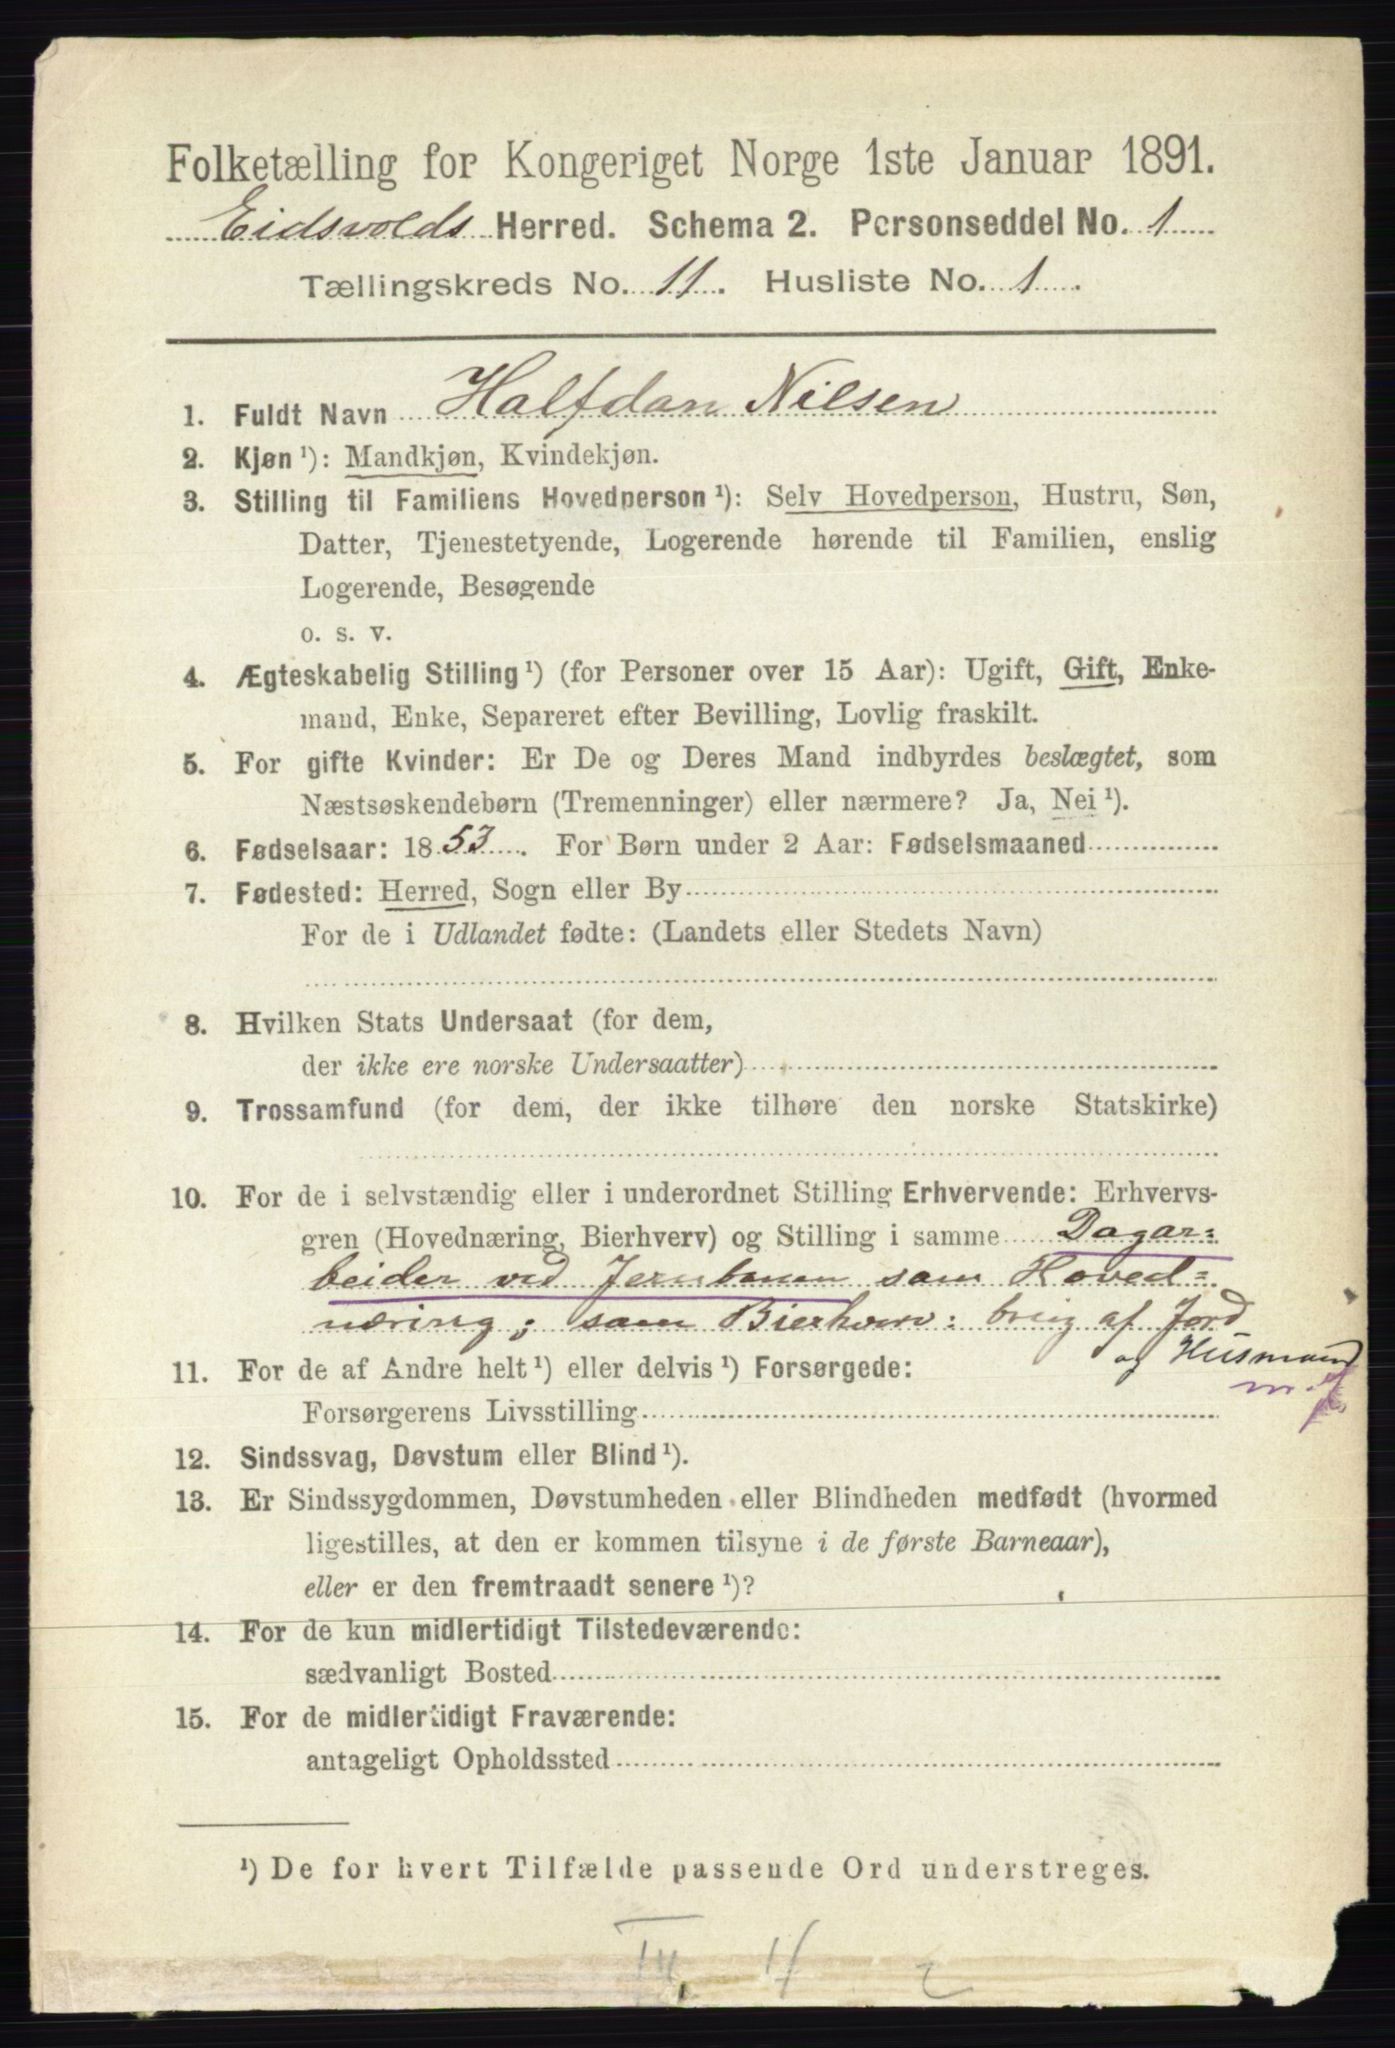 Folketælling for Kongeriget Norge 1ste Januar 1891.
Eidsvolds Herred. Schema 2. Personseddel No. 1
Tællingskreds No. 11. Husliste No. 1.
1. Fuldt Navn Halfdan Nilsen
2. Kjøn ¹): Mandkjøn, Kvindekjøn.
3. Stilling til Familiens Hovedperson ¹): Selv Hovedperson, Hustru, Søn,
Datter, Tjenestetyende, Logerende hørende til Familien, enslig
Logerende, Besøgende
o. s. v.
4. Ægteskabelig Stilling ¹) (for Personer over 15 Aar): Ugift, Gift, Enke-
mand, Enke, Separeret efter Bevilling, Lovlig fraskilt.
5. For gifte Kvinder: Er De og Deres Mand indbyrdes beslægtet, som
Næstsøskendebørn (Tremenninger) eller nærmere? Ja, Nei ¹).
6. Fødselsaar: 1853. For Børn under 2 Aar: Fødselsmaaned
7. Fødested: Herred, Sogn eller By
For de i Udlandet fødte: (Landets eller Stedets Navn)
8. Hvilken Stats Undersaat (for dem,
der ikke ere norske Undersaatter)
9. Trossamfund (for dem, der ikke tilhøre den norske Statskirke)
10. For de i selvstændig eller i underordnet Stilling Erhvervende: Erhvervs-
gren (Hovednæring, Bierhverv) og Stilling i samme Dagar=
beider ved Jernbanen som Hoved=
næring; som Bierhverv: brug af Jord
og Husmand
m. J.
11. For de af Andre helt ¹) eller delvis ¹) Forsørgede:
Forsørgerens Livsstilling
12. Sindssvag, Døvstum eller Blind ¹).
13. Er Sindssygdommen, Døvstumheden eller Blindheden medfødt (hvormed
ligestilles, at den er kommen tilsyne i de første Barneaar),
eller er den fremtraadt senere ¹)?
14. For de kun midlertidigt Tilstedeværende:
sædvanligt Bosted
15. For de midlertidigt Fraværende:
antageligt Opholdssted
¹) De for hvert Tilfælde passende Ord understreges.